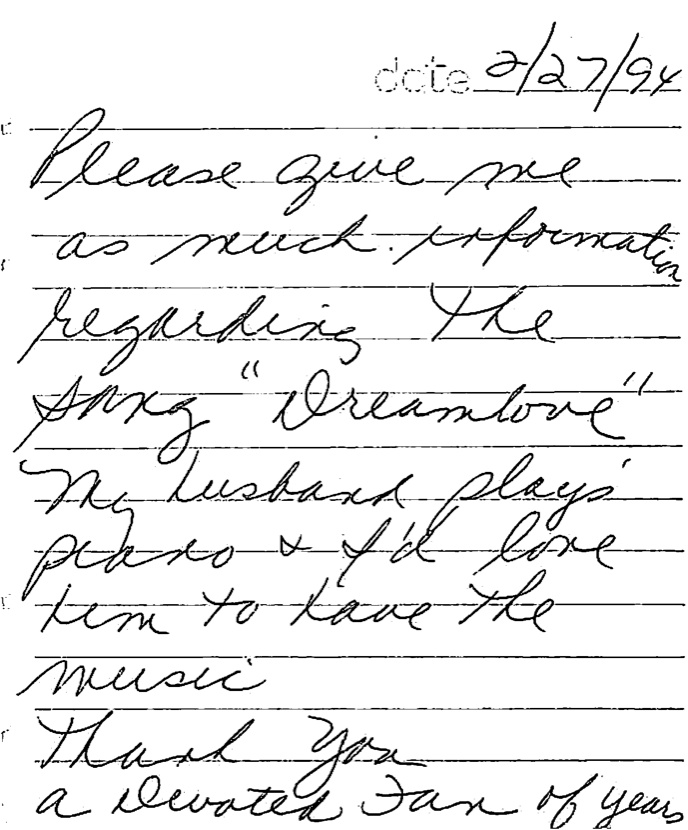 date 2/27/94
Please give me
as much information
regarding the
song "Dreamlove"
My husband plays
piano & I'd love
him to have the
music
Thank You
a Devoted Fan of years